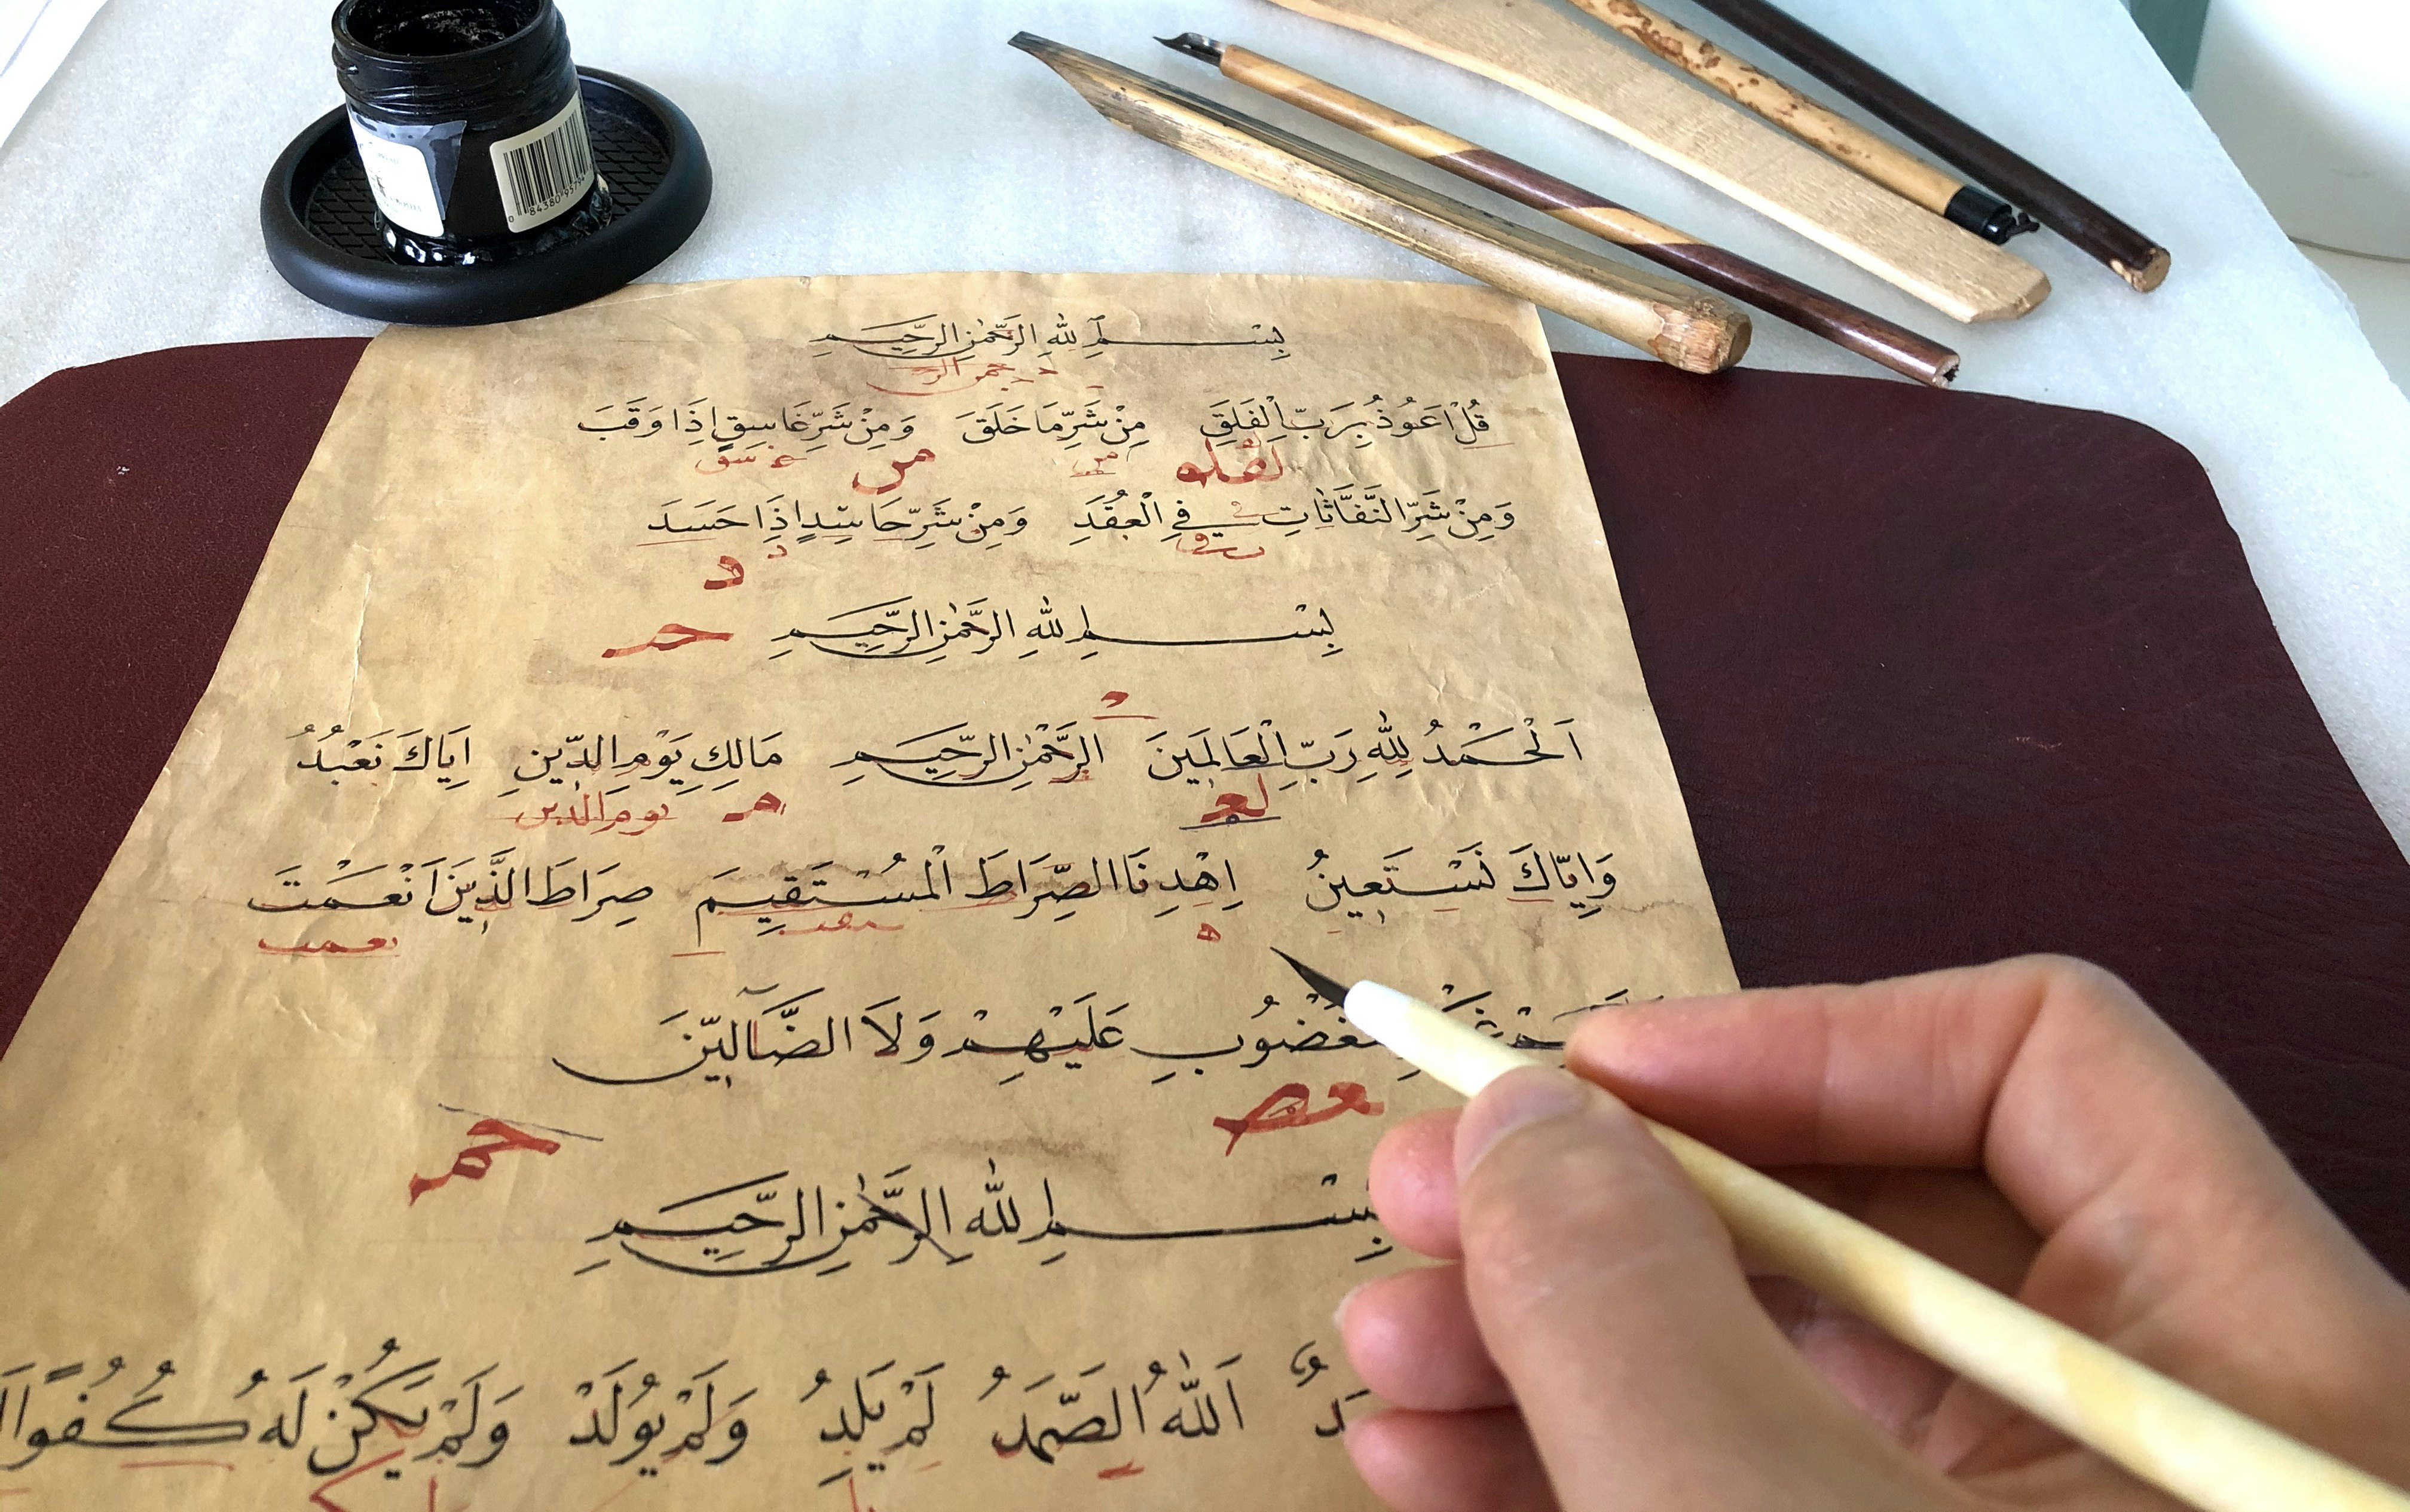 0 84380 95794
بِسْــــمِ ٱللّٰهِ الرَّحْمٰنِ الرَّحِيمِ
حمن الرحـ
قُلْ اَعُوذُ بِرَبِّ الْفَلَقِ مِنْ شَرِّ مَا خَلَقَ وَمِنْ شَرِّ غَاسِقٍ اِذَا وَقَبَ
من
وَمِنْ شَرِّ النَّفَّاثَاتِ فِي الْعُقَدِ وَمِنْ شَرِّ حَاسِدٍ اِذَا حَسَدَ
د
بِسْــــمِ اللّٰهِ الرَّحْمٰنِ الرَّحِيمِ
حر
اَلْحَمْدُ لِلّٰهِ رَبِّ الْعَالَمِينَ الرَّحْمٰنِ الرَّحِيمِ مَالِكِ يَوْمِ الدِّينِ اِيَاكَ نَعْبُدُ
لعـ مـ يوم الدين
وَاِيَّاكَ نَسْتَعِينُ اِهْدِنَا الصِّرَاطَ الْمُسْتَقِيمَ صِرَاطَ الَّذِينَ اَنْعَمْتَ
ه نعمت
عَلَيْهِمْ وَلَا الضَّآلِّينَ
غضـ
حمـ
بِسْــــمِ اللّٰهِ الرَّحْمٰنِ الرَّحِيمِ
اَللّٰهُ الصَّمَدُ لَمْ يَلِدْ وَلَمْ يُولَدْ وَلَمْ يَكُنْ لَهُ كُفُوًا